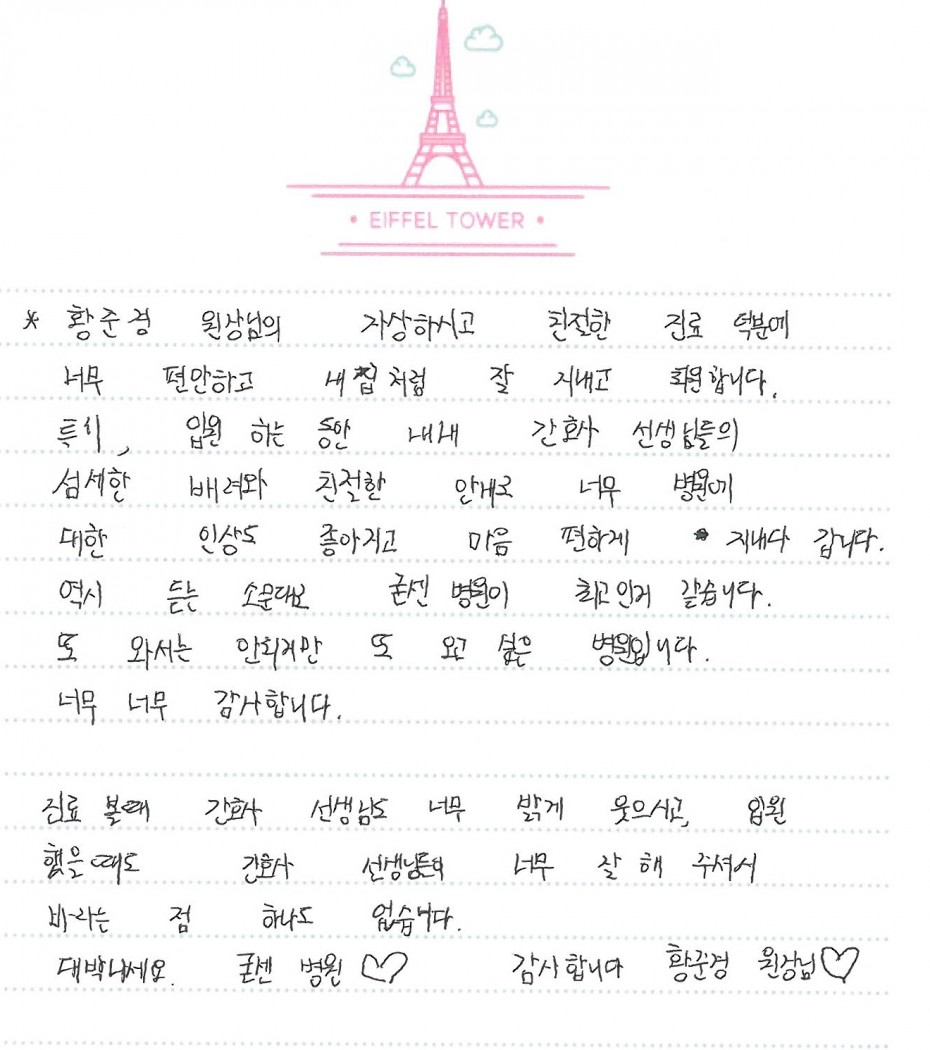 • EIFFEL TOWER •
* 황준경 원상님의 자상하시고 친절한 진료 덕분에
너무 편안하고 내 집처럼 잘 지내고 퇴원합니다.
특히, 입원 하는 동안 내내 간호사 선생님들의
섬세한 배려와 친절한 안내로 너무 병원에
대한 인상도 좋아지고 마음 편하게 지내다 갑니다.
역시 듣는 소문대로 굳센 병원이 최고인거 같습니다.
또 와서는 안되지만 또 오고 싶은 병원입니다.
너무 너무 감사합니다.
진료 볼때 간호사 선생님도 너무 밝게 웃으시고, 입원
했을때도 간호사 선생님들이 너무 잘 해 주셔서
바라는 점 하나도 없습니다.
대박나세요. 굳센 병원♡ 감사합니다 황준경 원장님♡